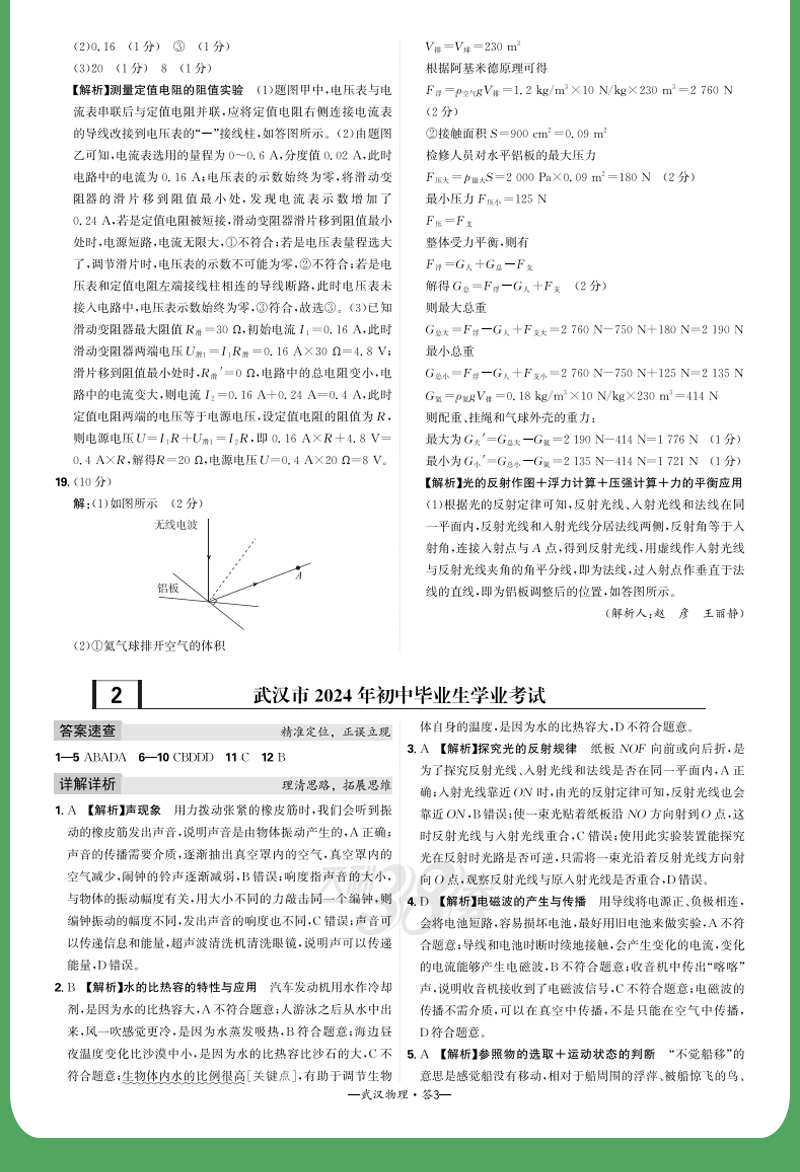 (2)0.16 (1分) ③ (1分)
(3)20 (1分) 8 (1分)
【解析】测量定值电阻的阻值实验 (1)题图甲中,电压表与电
流表串联后与定值电阻并联,应将定值电阻右侧连接电流表
的导线改接到电压表的“一”接线柱,如答图所示。(2)由题图
乙可知,电流表选用的量程为0~0.6 A,分度值0.02 A,此时
电路中的电流为0.16 A;电压表的示数始终为零,将滑动变
阻器的滑片移到阻值最小处,发现电流表示数增加了
0.24 A,若是定值电阻被短接,滑动变阻器滑片移到阻值最小
处时,电源短路,电流无限大,①不符合;若是电压表量程选大
了,调节滑片时,电压表的示数不可能为零,②不符合;若是电
压表和定值电阻左端接线柱相连的导线断路,此时电压表未
接入电路中,电压表示数始终为零,③符合,故选③。(3)已知
滑动变阻器最大阻值R滑=30 Ω,初始电流I₁=0.16 A,此时
滑动变阻器两端电压U滑1=I₁R滑=0.16 A×30 Ω=4.8 V;
滑片移到阻值最小处时,R滑′=0 Ω,电路中的总电阻变小,电
路中的电流变大,则电流I₂=0.16 A+0.24 A=0.4 A,此时
定值电阻两端的电压等于电源电压,设定值电阻的阻值为R,
则电源电压U=I₁R+U滑1=I₂R,即0.16 A×R+4.8 V=
0.4 A×R,解得R=20 Ω,电源电压U=0.4 A×20 Ω=8 V。
19.(10分)
解:(1)如图所示 (2分)
无线电波
A
铝板
(2)①氦气球排开空气的体积
V排=V球=230 m³
根据阿基米德原理可得
F浮=ρ空气gV排=1.2 kg/m³×10 N/kg×230 m³=2 760 N
(2分)
②接触面积S=900 cm²=0.09 m²
检修人员对水平铝板的最大压力
F压大=p最大S=2 000 Pa×0.09 m²=180 N (2分)
最小压力F压小=125 N
F压=F支
整体受力平衡,则有
F浮=G人+G总-F支
解得G总=F浮-G人+F支 (2分)
则最大总重
G总大=F浮-G人+F支大=2 760 N-750 N+180 N=2 190 N
最小总重
G总小=F浮-G人+F支小=2 760 N-750 N+125 N=2 135 N
G氦=ρ氦gV排=0.18 kg/m³×10 N/kg×230 m³=414 N
则配重、挂绳和气球外壳的重力:
最大为G大′=G总大-G氦=2 190 N-414 N=1 776 N (1分)
最小为G小′=G总小-G氦=2 135 N-414 N=1 721 N (1分)
【解析】光的反射作图+浮力计算+压强计算+力的平衡应用
(1)根据光的反射定律可知,反射光线、入射光线和法线在同
一平面内,反射光线和入射光线分居法线两侧,反射角等于入
射角,连接入射点与A点,得到反射光线,用虚线作入射光线
与反射光线夹角的角平分线,即为法线,过入射点作垂直于法
线的直线,即为铝板调整后的位置,如答图所示。
(解析人:赵 彦 王丽静)
2 武汉市2024年初中毕业生学业考试
答案速查 精准定位,正误立现
1—5 ABADA 6—10 CBDDD 11 C 12 B
详解详析 理清思路,拓展思维
1. A 【解析】声现象 用力拨动张紧的橡皮筋时,我们会听到振
动的橡皮筋发出声音,说明声音是由物体振动产生的,A正确;
声音的传播需要介质,逐渐抽出真空罩内的空气,真空罩内的
空气减少,闹钟的铃声逐渐减弱,B错误;响度指声音的大小,
与物体的振动幅度有关,用大小不同的力敲击同一个编钟,则
编钟振动的幅度不同,发出声音的响度也不同,C错误;声音可
以传递信息和能量,超声波清洗机清洗眼镜,说明声可以传递
能量,D错误。
2. B 【解析】水的比热容的特性与应用 汽车发动机用水作冷却
剂,是因为水的比热容大,A不符合题意;人游泳之后从水中出
来,风一吹感觉更冷,是因为水蒸发吸热,B符合题意;海边昼
夜温度变化比沙漠中小,是因为水的比热容比沙石的大,C不
符合题意;生物体内水的比例很高[关键点],有助于调节生物
体自身的温度,是因为水的比热容大,D不符合题意。
3. A 【解析】探究光的反射规律 纸板NOF向前或向后折,是
为了探究反射光线、入射光线和法线是否在同一平面内,A正
确;入射光线靠近ON时,由光的反射定律可知,反射光线也会
靠近ON,B错误;使一束光贴着纸板沿NO方向射到O点,这
时反射光线与入射光线重合,C错误;使用此实验装置能探究
光在反射时光路是否可逆,只需将一束光沿着反射光线方向射
向O点,观察反射光线与原入射光线是否重合,D错误。
4. D 【解析】电磁波的产生与传播 用导线将电源正、负极相连,
会将电池短路,容易损坏电池,最好用旧电池来做实验,A不符
合题意;导线和电池时断时续地接触,会产生变化的电流,变化
的电流能够产生电磁波,B不符合题意;收音机中传出“喀喀”
声,说明收音机接收到了电磁波信号,C不符合题意;电磁波的
传播不需介质,可以在真空中传播,不是只能在空气中传播,
D符合题意。
5. A 【解析】参照物的选取+运动状态的判断 “不觉船移”的
意思是感觉船没有移动,相对于船周围的浮萍、被船惊飞的鸟、
—武汉物理·答3—